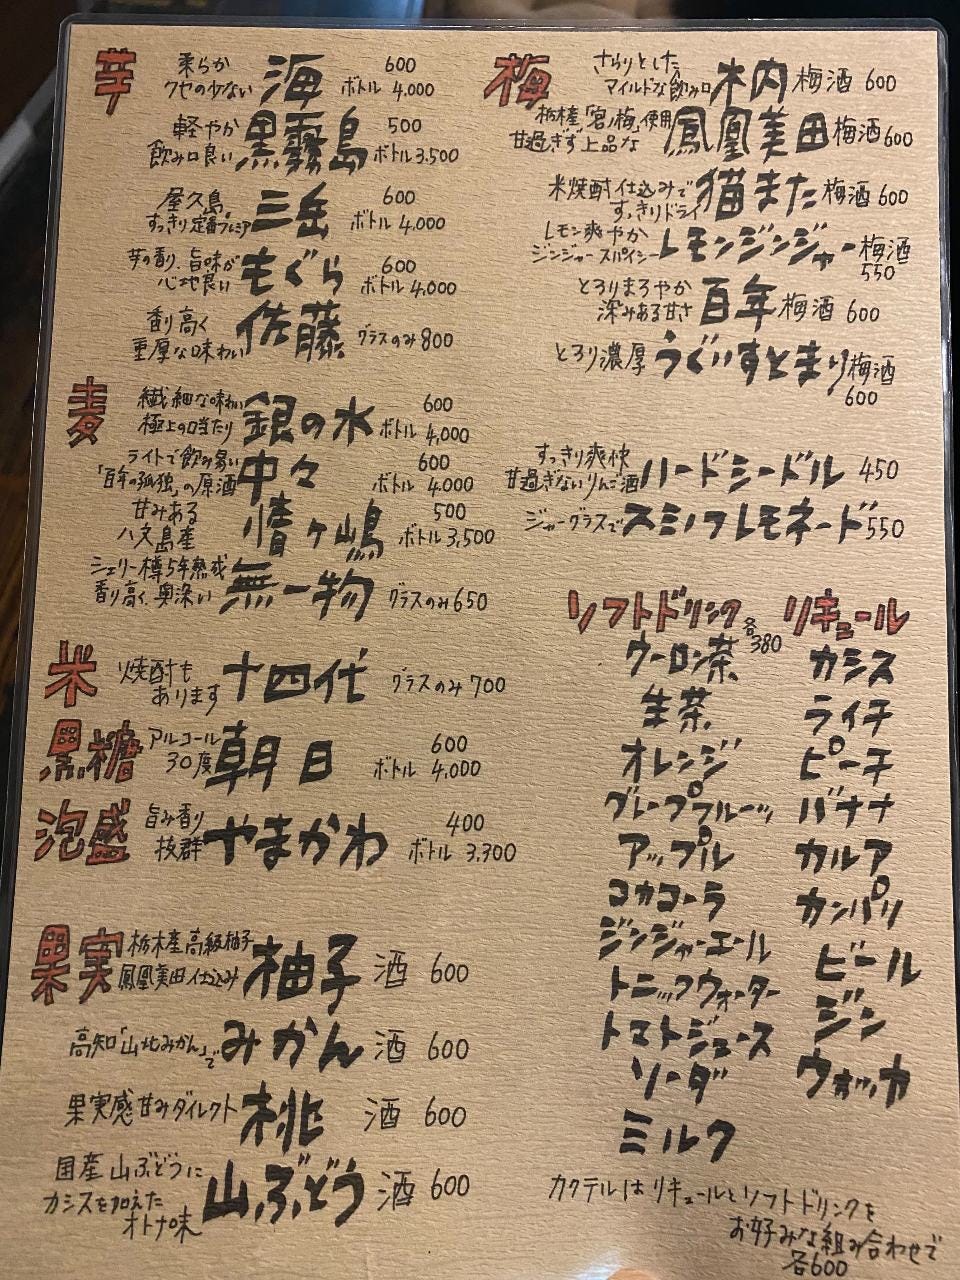 芋
柔らか
クセの少ない 海 600
ボトル 4,000
軽やか
飲み口良い 黒霧島 500
ボトル 3,500
屋久島。
すっきり定番プレミア 三岳 600
ボトル 4,000
芋の香り、旨味が
心地良い もぐら 600
ボトル 4,000
香り高く
重厚な味わい 佐藤 グラスのみ 800
麦
繊細な味わい
極上の口当たり 銀の水 600
ボトル 4,000
ライトで飲み易い
「百年の孤独」の原酒 中々 600
ボトル 4,000
甘みある
八丈島産 情ヶ嶋 500
ボトル 3,500
シェリー樽5年熟成
香り高く、奥深い 無一物 グラスのみ 650
米
焼酎も
あります 十四代 グラスのみ 700
黒糖
アルコール
30度 朝日 600
ボトル 4,000
泡盛
旨み香り
抜群 やまかわ 400
ボトル 3,300
果実
栃木産高級柚子
鳳凰美田仕込み 柚子 酒 600
高知「山北みかん」で みかん 酒 600
果実感 甘みダイレクト 桃 酒 600
国産山ぶどうに
カシスを加えた
オトナ味 山ぶどう 酒 600
梅
さらりとした
マイルドな飲み口 木内 梅酒 600
栃木産「宮ノ梅」使用
甘過ぎず上品な 鳳凰美田 梅酒 600
米焼酎仕込みで
すっきりドライ 猫また 梅酒 600
レモン爽やか
ジンジャースパイシー レモンジンジャー 梅酒
550
とろりまろやか
深みある甘さ 百年 梅酒 600
とろり濃厚 うぐいすとまり 梅酒
600
すっきり爽快
甘過ぎないりんご酒 ハードシードル 450
ジャーグラスで スミノフレモネード 550
ソフトドリンク 各380
ウーロン茶
生茶
オレンジ
グレープフルーツ
アップル
コカコーラ
ジンジャーエール
トニックウォーター
トマトジュース
ソーダ
ミルク
リキュール
カシス
ライチ
ピーチ
バナナ
カルア
カンパリ
ビール
ジン
ウォッカ
カクテルはリキュールとソフトドリンクを
お好みな組み合わせで
各600